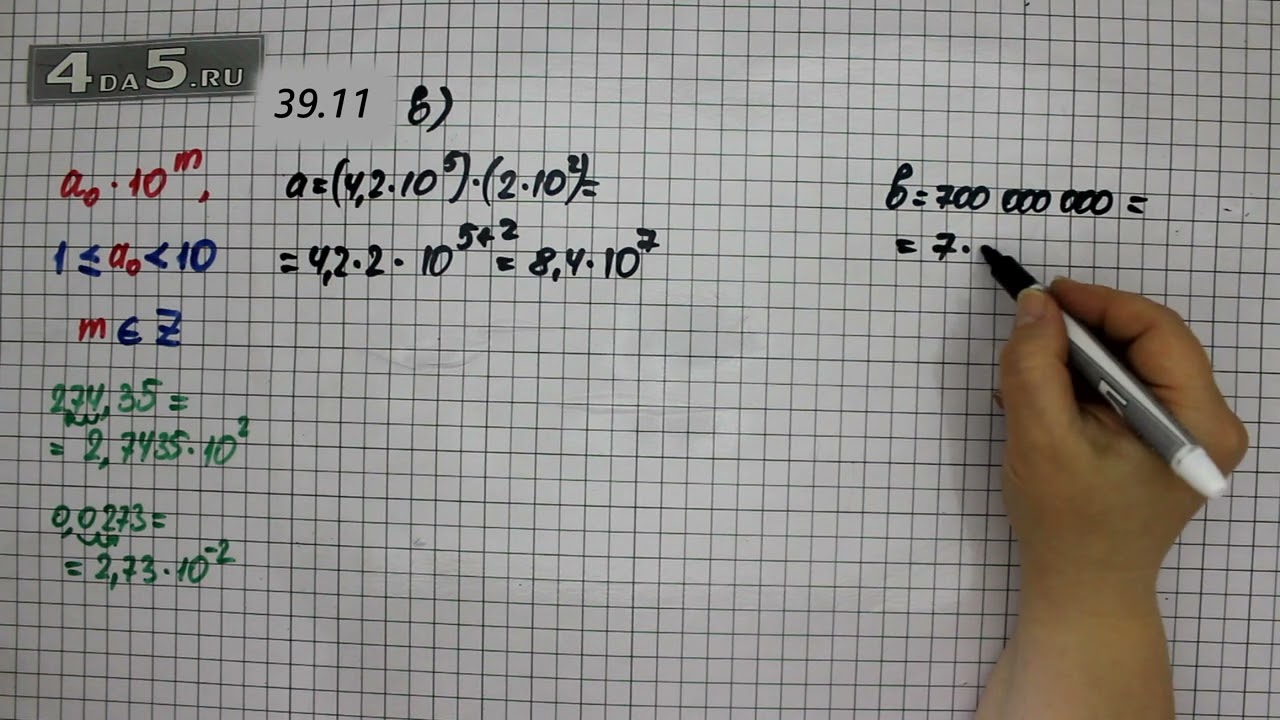 4DA5.RU
39.11 в)
a₀ · 10ᵐ,
1 ≤ a₀ < 10
m ∈ Z
274,35 =
= 2,7435 · 10²
0,0273 =
= 2,73 · 10⁻²
a = (4,2 · 10⁵) · (2 · 10²) =
= 4,2 · 2 · 10⁵⁺² = 8,4 · 10⁷
b = 700 000 000 =
= 7 ·